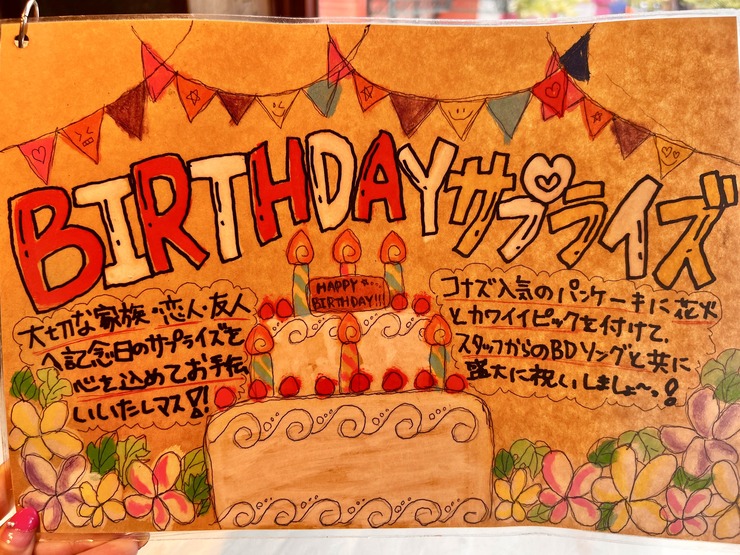 BIRTHDAYサプライズ
HAPPY
BIRTHDAY!!!
大切な家族・恋人・友人
へ記念日のサプライズを
心を込めてお手伝
いいたしマス!!
コナズ人気のパンケーキに花火
とカワイイピックを付けて、
スタッフからのBDソングと共に
盛大に祝いしましょ〜!